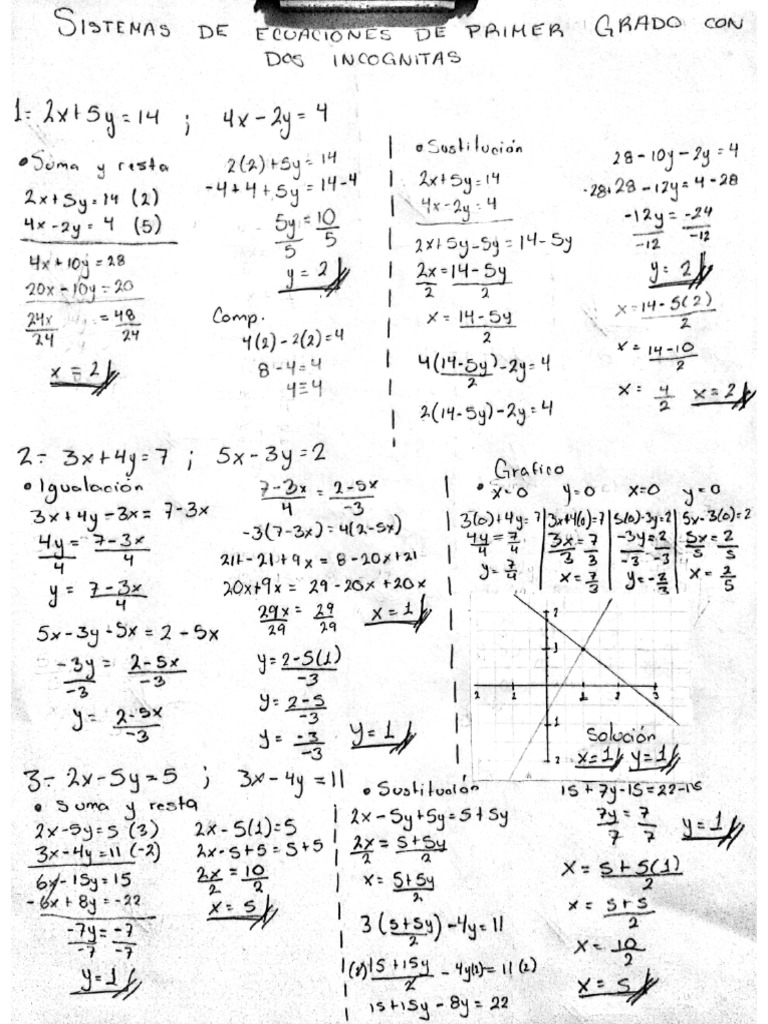 SISTEMAS DE ECUACIONES DE PRIMER GRADO CON
DOS INCOGNITAS
1÷ 2x+5y=14 ; 4x-2y=4
• Suma y resta
2x+5y=14 (2)
4x-2y=4 (5)
4x+10y=28
20x-10y=20
24x/24 = 48/24
x=2
2(2)+5y=14
-4+4+5y=14-4
5y/5 = 10/5
y=2
Comp.
4(2)-2(2)=4
8-4=4
4=4
• Sustitución
2x+5y=14
4x-2y=4
2x+5y-5y=14-5y
2x/2 = 14-5y/2
x = 14-5y/2
4(14-5y/2)-2y=4
2(14-5y)-2y=4
28-10y-2y=4
-28+28-12y=4-28
-12y/-12 = -24/-12
y=2
x=14-5(2)/2
x=14-10/2
x=4/2 x=2
2÷ 3x+4y=7 ; 5x-3y=2
• Igualación
3x+4y-3x=7-3x
4y/4 = 7-3x/4
y = 7-3x/4
5x-3y-5x=2-5x
-3y/-3 = 2-5x/-3
y = 2-5x/-3
7-3x/4 = 2-5x/-3
-3(7-3x)=4(2-5x)
21-21+9x=8-20x+21
20x+9x=29-20x+20x
29x/29 = 29/29 x=1
y=2-5(1)/-3
y=2-5/-3
y=-3/-3 y=1
• Grafico
x=0 y=0 x=0 y=0
3(0)+4y=7 3x+4(0)=7 5(0)-3y=2 5x-3(0)=2
4y/4=7/4 3x/3=7/3 -3y/-3=2/-3 5x/5=2/5
y=7/4 x=7/3 y=-2/3 x=2/5
2
3
2 1 1 2 3
1
2
Solución
x=1 y=1
3÷ 2x-5y=5 ; 3x-4y=11
• Suma y resta
2x-5y=5 (3)
3x-4y=11 (-2)
6x-15y=15
-6x+8y=-22
-7y/-7 = -7/-7
y=1
2x-5(1)=5
2x-5+5=5+5
2x/2 = 10/2
x=5
• Sustitución
2x-5y+5y=5+5y
2x/2 = 5+5y/2
x = 5+5y/2
3(5+5y/2)-4y=11
(2)15+15y/2 - 4y(2)=11(2)
15+15y-8y=22
15+7y-15=22-15
7y/7 = 7/7 y=1
x=5+5(1)/2
x=5+5/2
x=10/2
x=5